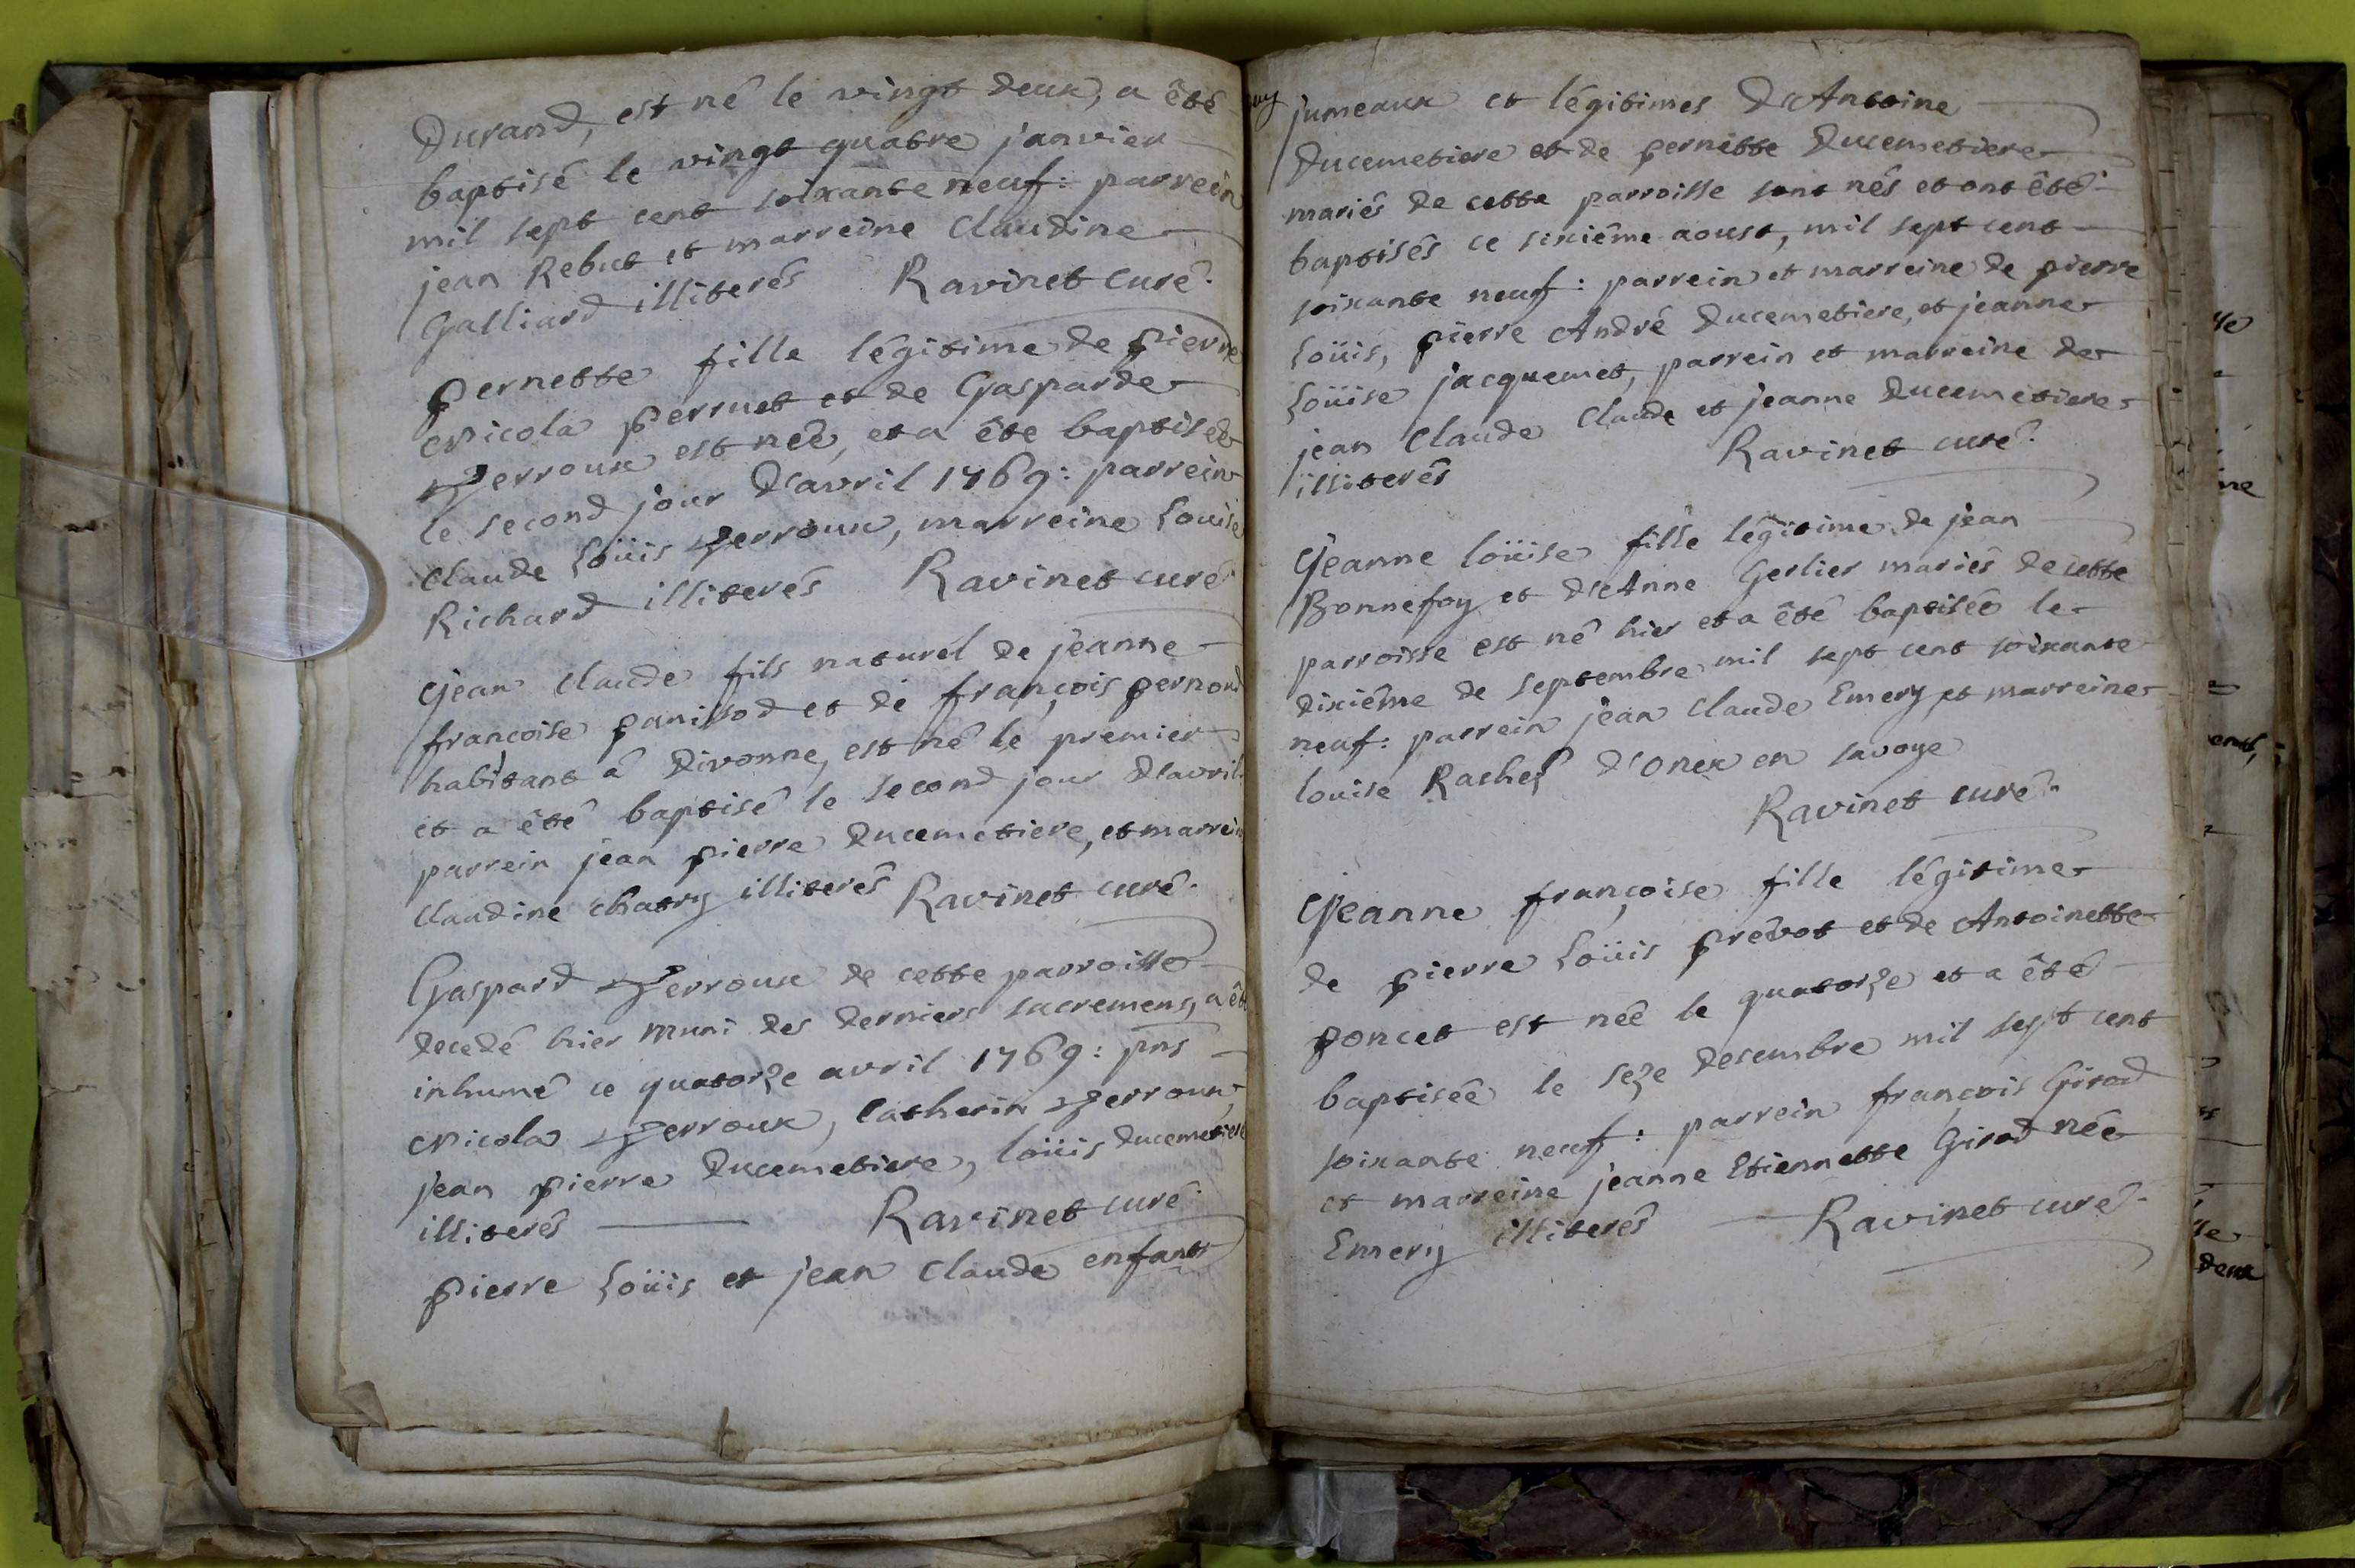 Durand, est né le vingt deux, a êté
baptisé le vingt quatre janvier
mil sept cent soixante neuf: parrein
jean Rebut et marreine Claudine
Galliard illiterés Ravinet curé.
pernette fille légitime de pierre
Nicola perruet et de Gasparde
Verroux est née, et a été baptisée
le second jour d'avril 1769: parrein
Claude Loüis Verroux, marreine Louise
Richard illiterés Ravinet curé
Jean Claude fils naturel de jeanne
francoise panissod et de françois pernond
habitant á divonne, est né le premier
et a été baptisé le second jour d'avril
parrein jean pierre Ducemetiere, et marrein
Claudine chatry illiterés Ravinet curé.
Gaspard Verroux de cette parroisse
decedé hier muni des derniers sacremens, a êté
inhumé ce quatorze avril 1769: pns
Nicola Verroux, Catherin Verroux
jean pierre Ducemetiere, loüis ducemetiere
illiterés Ravinet curé
pierre Loüis et jean Claude enfants
jumeaux et légitimes d'Antoine
Ducemetiere et de pernette Ducemetiere
mariés de cette parroisse sont nés et ont êté
baptisés ce sixiéme aoust, mil sept cent
soixante neuf: parrein et marreine de pierre
Loüis, pierre André Ducemetiere, et jeanne
Loüise jacquemet, parrein et marreine de
jean Claude Claude et jeanne Ducemetiere
illiterés Ravinet curé.
Jeanne loüise fille légitime de jean
Bonnefoy et d'Anne Gerlier mariés de cette
parroisse est né hier et a êté baptisée le
dixiéme de septembre mil sept cent soixante
neuf: parrein jean Claude Emery et marreine
louise d'onex en savoye
Ravinet curé.
Jeanne françoise fille légitime
de pierre Loüis prévot et de Antoinette
poncet est née le quatorze et a êté
baptisée le seze desembre mil sept cent
soixante neuf: parrein françois Girod
et marreine jeanne Etiennette Girod née
Emery illiterés Ravinet curé.